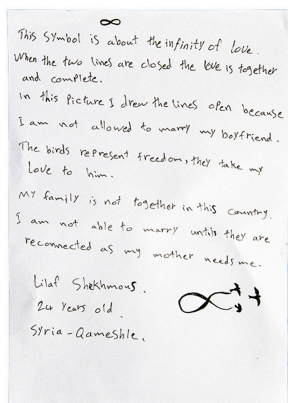 ∞
This symbol is about the infinity of love.
When the two lines are closed the love is together
and complete.
In this picture I drew the lines open because
I am not allowed to marry my boyfriend.
The birds represent freedom, they take my
Love to him.
My family is not together in this country.
I am not able to marry until they are
reconnected as my mother needs me.
Lilaf Shekhmous.
24 years old.
Syria - Qameshle.